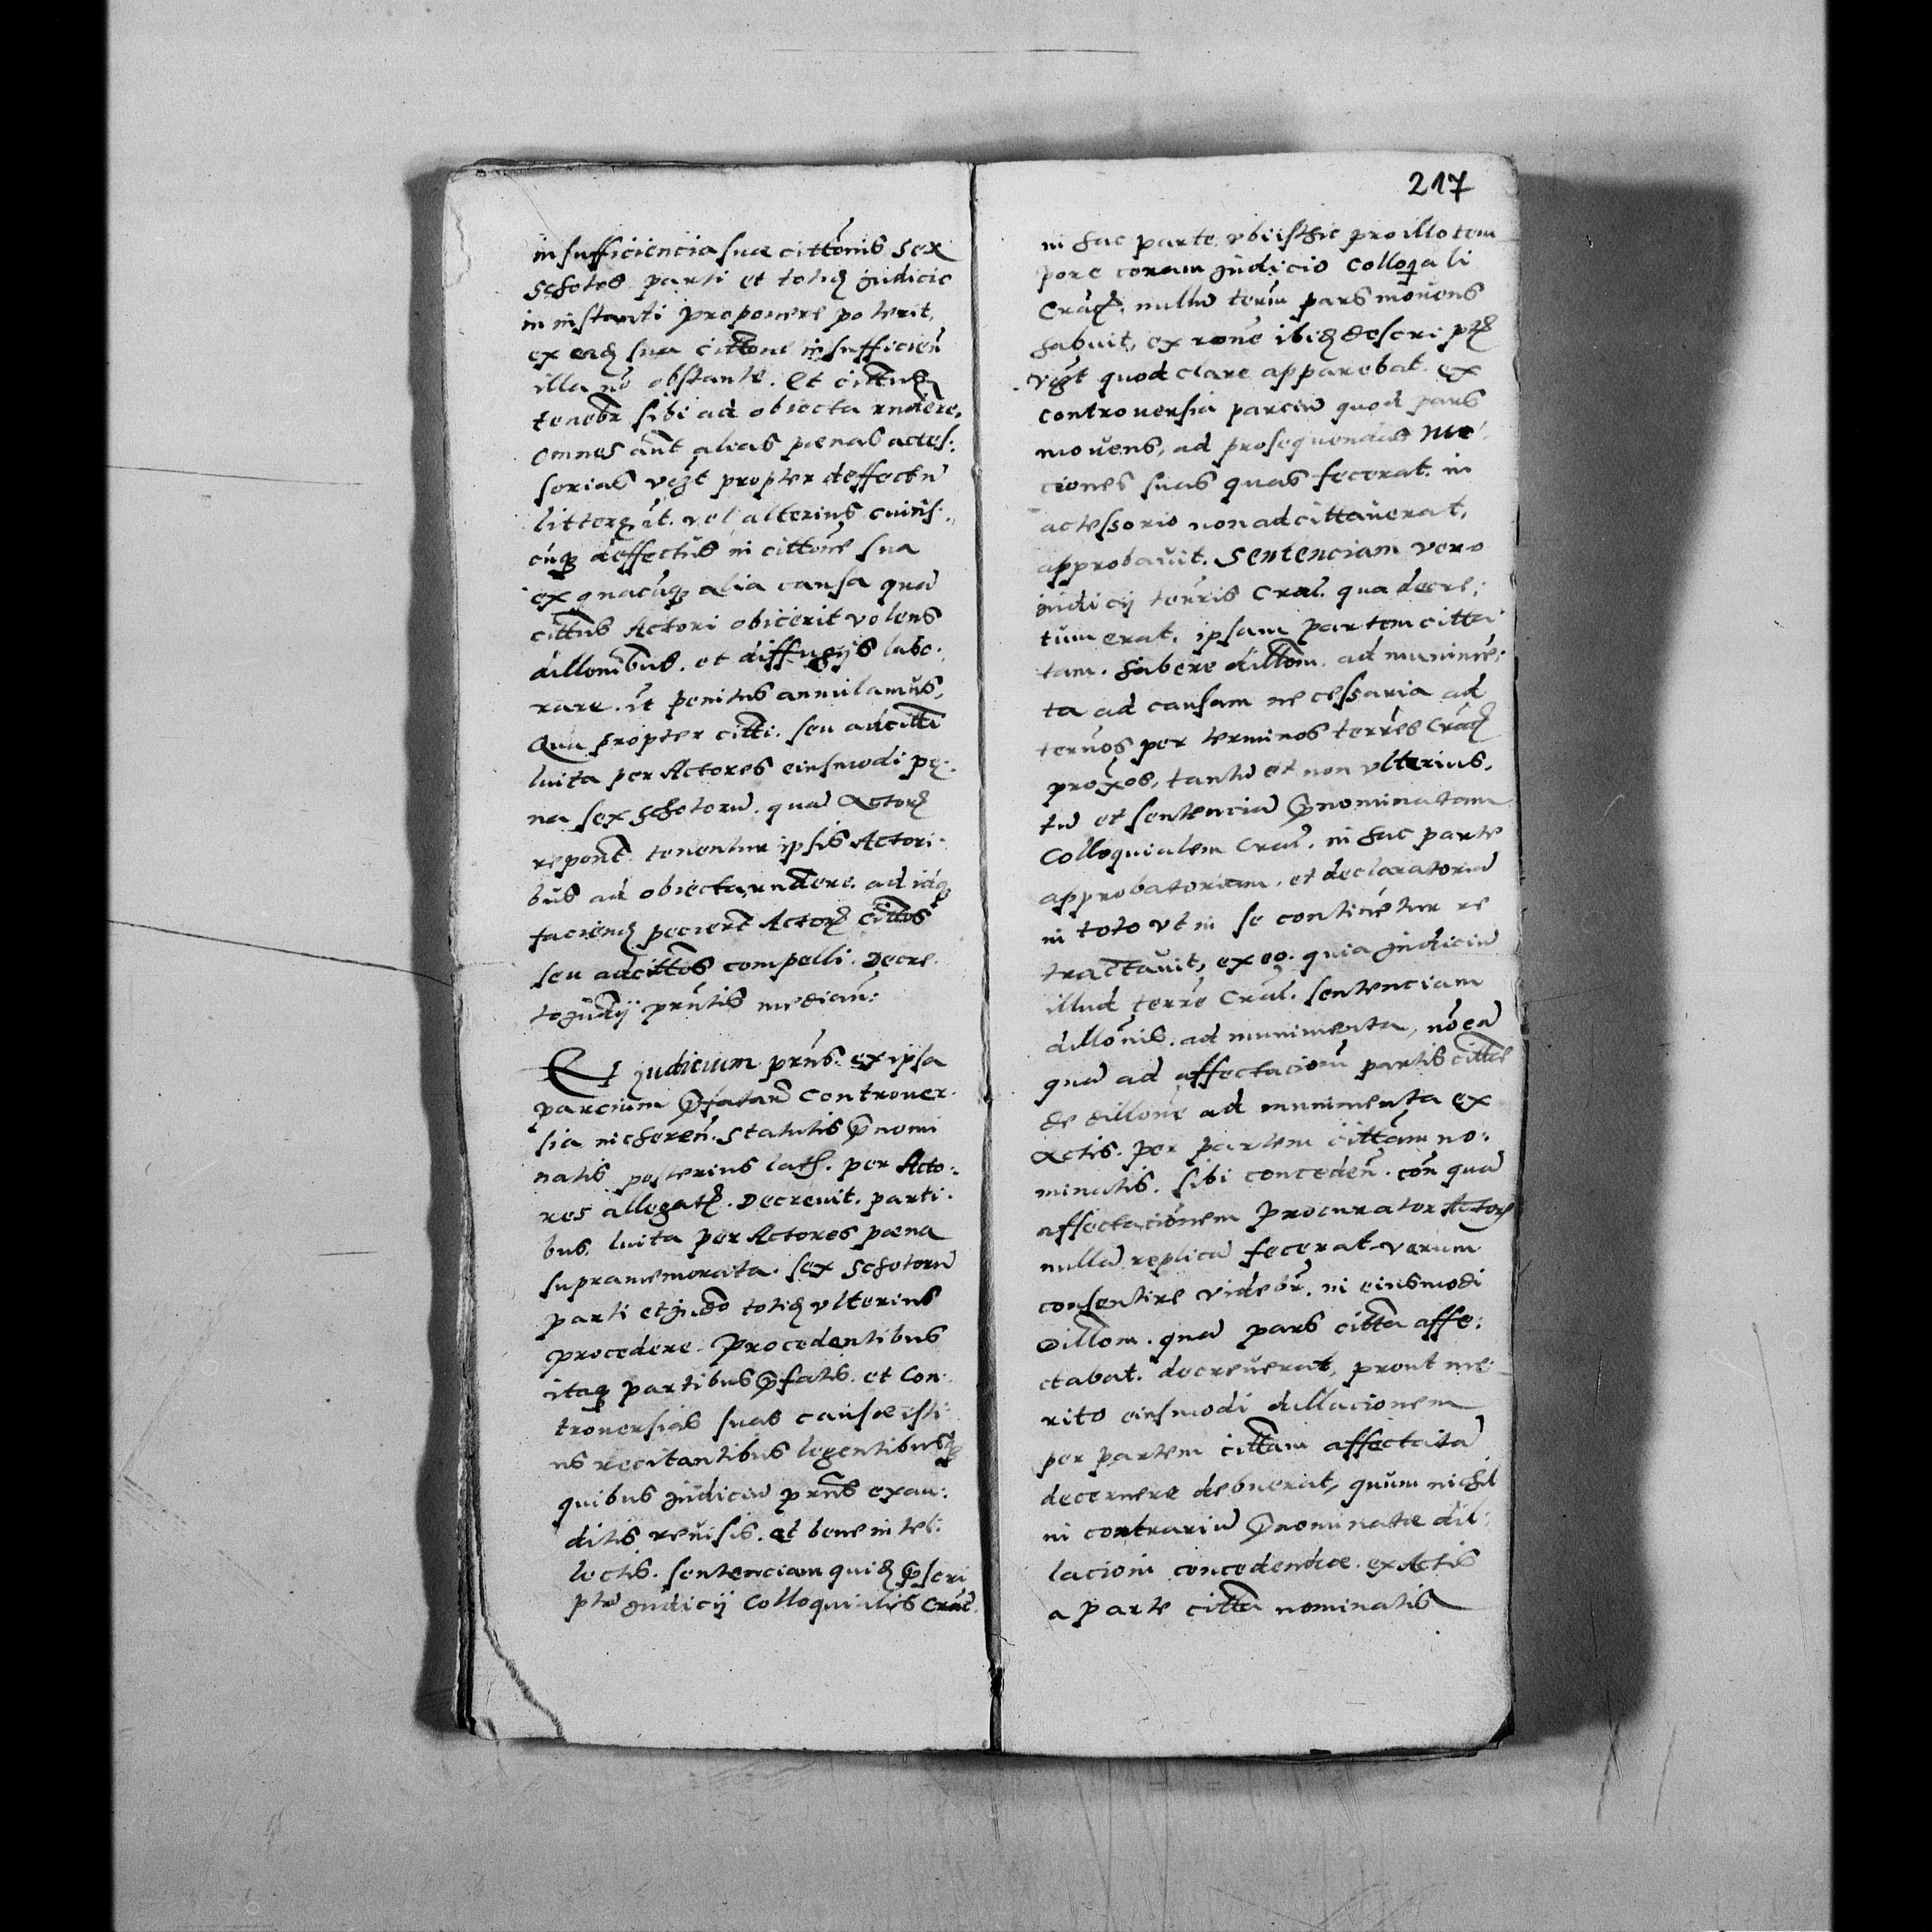 insufficiencia suae cittonis sex
schotos parti et totiq judicio
in instanti proponere poterit,
ex eadq sua cittone insufficien
illa no obstante. Et cittusq
tenebr sibi ad obiecta rndere.
omnes aut alias paenas acces:
sorias vegt propter deffectu
litterq it. vel alterius cuius:
cuq deffectus in cittone sua
ex quacuq alia causa qua
cittus Actori obicerit volens
dillonibus. et diffugijs labo:
rare. it penitus annulamus,
Qua propter citti. seu adcitti
luita per Actores eiusmodi pe:
na sex schotoru. qua Actorq
repont tenentur ipsis Actori:
bus ad obiecta rndere. ad idq
faciendq peciert Actorq cittos
seu adcittos compelli. Decre
to judij prntis median:
Et judicium prns. ex ipsa
parcium pfatar controver
sia nicheren. statutis pnomi
natis posterius latq. per Acto:
res allegatq. Decrevit. parti:
bus, luita per Actores paena
supramemorata. sex schotoru
parti et judo totiq ulterius
procedere. Procedentibus
itaq partibus pfatis. et con
troversias suas causae isti:
us recitantibus legentibusq
quibus judiciu prns exau:
ditis revisis. et bene intel:
lectis. sententiam quidq pscri
pta judicij Colloquialis Crac.
217
in hac parte, ubi isthic pro illo tem
pore coram judicio colloqali
Cracq. nullu teriu pars movens
habuit, ex rone ibiq descriptq
vegt quod clare apparebat. ex
controversia parciu quod pars
movens, ad prosequendas mo:
ciones suas quas fecerat. in
accessorio non adcittaverat,
approbavit. Sentenciam vero
iudicij terris Cral. qua decre:
tum erat. ipsam partem citta
tam. habere dillom. ad munime:
ta ad causam necessaria ad
teruos per terminos terres Cracq
proxos, tantu et non ulterius.
tu et sentencia pnominatam
Colloquialem Crac. in hac parte
approbatoriam. et declaratoria
in toto ut in se continetur re
tractavit, ex eo. quia judiciu
illud terre Crac. sentenciam
dillonis. ad munimenta, no ea
qua ad affectacionu partis cittae
de dillone ad munimenta ex
Actis. per partem cittam no:
minatis. sibi conceden. con qua
affectacionem procurator Actorq
nulla replica fecerat verum
consentire videbr. in eiusmodi
dillom. qua pars citta affe:
ctabat. decreverat, prout me:
rito eiusmodi dillacionem
per partem cittam affectata
decernere debuerat, quum nichil
in contrariu pnominatae dil:
lacioni concedendae. ex Actis
a parte citta nominatis